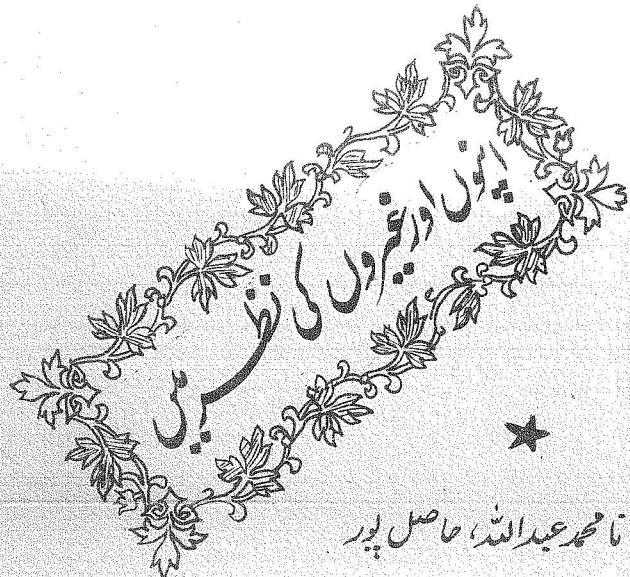 اپنوں اور غیروں کی نظر میں
نا محمد عبد اللہ، حاصل پور